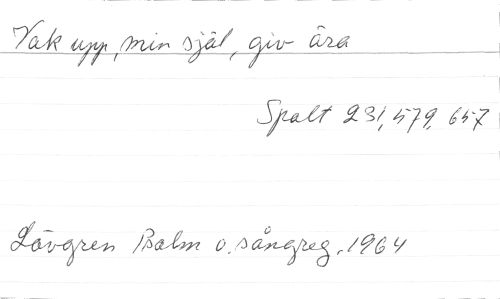 Vak upp, min själ, giv ära
Spalt 231, 579, 657
Lövgren Psalm o. sångreg. 1964